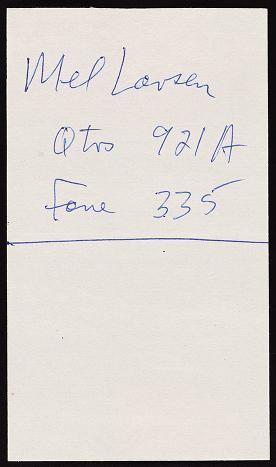 Mel Larsen
Qtrs 921A
Fone 335